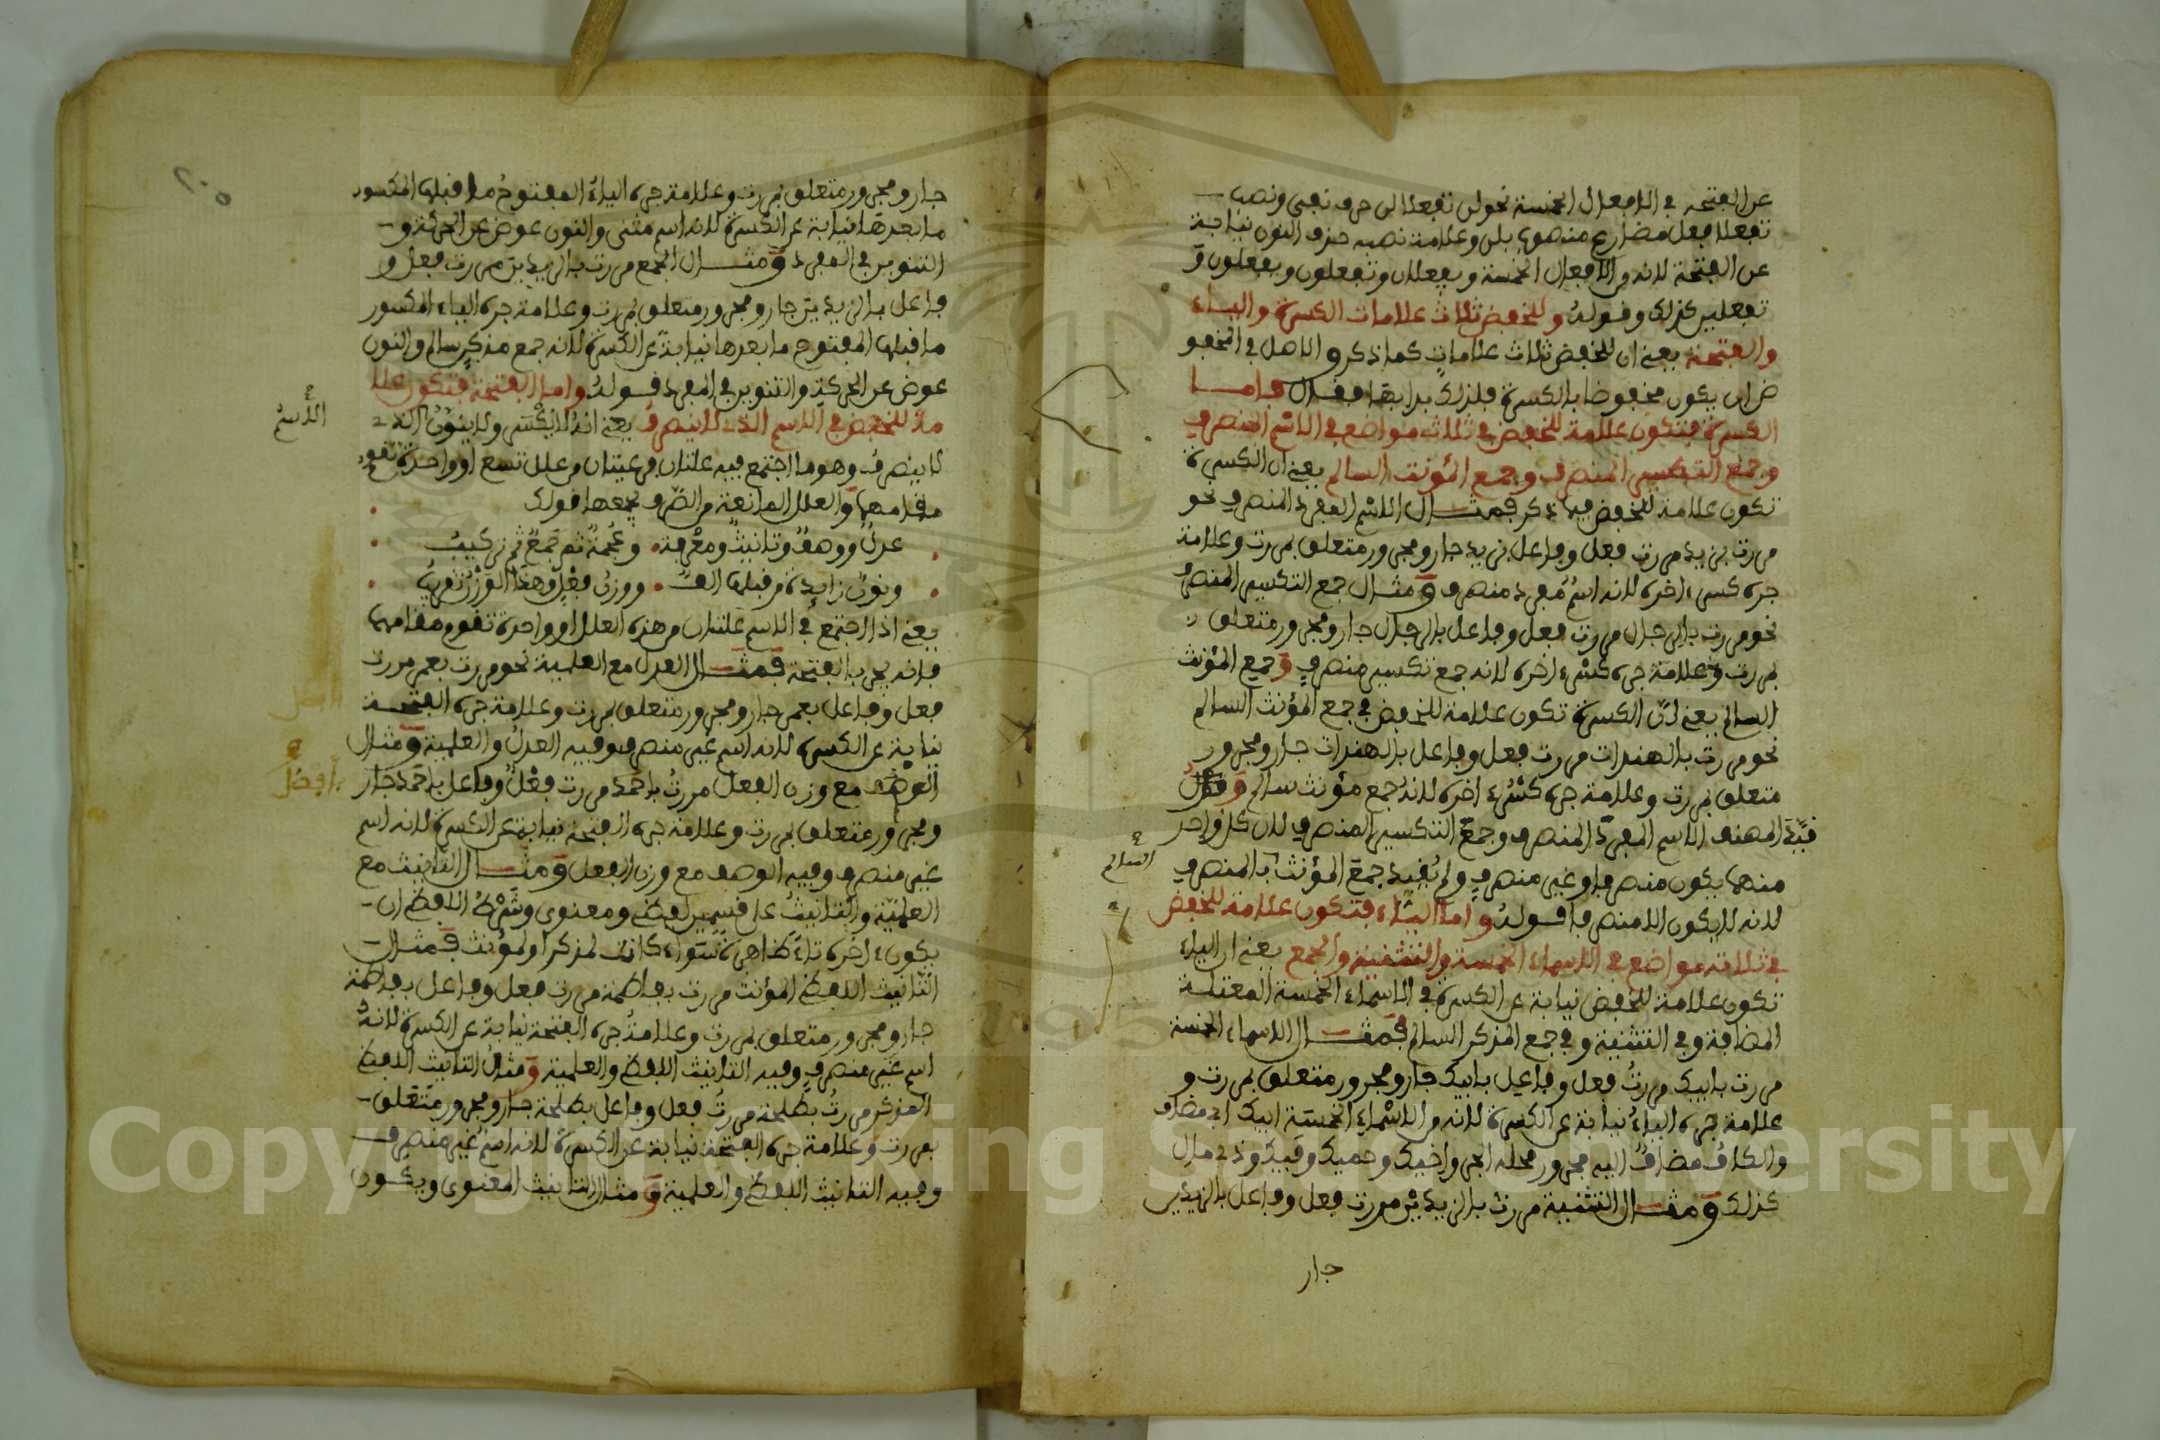 عن الفتحة في الافعال الخمسة نحو لن تفعلا لن حرف نفي ونصب
تفعلا فعل مضارع منصوب بلن وعلامة نصبه حذف النون نيابة
عن الفتحة لانه من الافعال الخمسة ويفعلان وتفعلون ويفعلون و
تفعلين كذلك وقوله وللخفض ثلاث علامات الكسرة والياء
والفتحة يعني ان للخفض ثلاث علامات كما ذكر والاصل في المخفو
ض ان يكون مخفوضا بالكسرة فلذلك بدا بها فقال فاما
الكسرة فتكون علامة للخفض في ثلاث مواضع في الاسم المنصرف
وجمع التكسير المنصرف وجمع المؤنث السالم يعني ان الكسرة
تكون علامة للخفض فيما ذكر فمثال الاسم المفرد المنصرف نحو
مررت بزيد مررت فعل وفاعل بزيد جار ومجرور متعلق بمررت وعلامة
جره كسر ءاخره لانه اسم مفرد منصرف ومثال جمع التكسير المنصرف
نحو مررت بالرجال مررت فعل وفاعل بالرجال جار ومجرور متعلق
بمررت وعلامة جره كسر ءاخره لانه جمع تكسير منصرف وجمع المؤنث
السالم يعني ان الكسرة تكون علامة للخفض في جمع المؤنث السالم
نحو مررت بالهندات مررت فعل وفاعل بالهندات جار ومجرور
متعلق بمررت وعلامة جره كسر ءاخره لانه جمع مؤنث سالم و
قيد المصنف الاسم المفرد المنصرف وجمع التكسير المنصرف لان كل واحد
منهما يكون منصرفا وغير منصرف ولم يقيد جمع المؤنث بالمنصرف
السالم
لانه لا يكون الا منصرفا قوله واما الياء فتكون علامة للخفض
في ثلاثة مواضع في الاسماء الخمسة والتثنية والجمع يعني ان الياء
تكون علامة للخفض نيابة عن الكسرة في الاسماء الخمسة المعتلة
المضافة وفي التثنية وفي جمع المذكر السالم فمثال الاسماء الخمسة
مررت بابيك مررت فعل وفاعل بابيك جار ومجرور متعلق بمررت و
علامة جره الياء نيابة عن الكسرة لانه من الاسماء الخمسة ابيك اب مضاف
والكاف مضاف اليه مجرور محله الجر واخيك وحميك وفيك وذي مال
كذلك ومثال التثنية مررت بالزيدين مررت فعل وفاعل بالزيدين
جار
جار ومجرور متعلق بمررت وعلامة جره الياء المفتوح ما قبلها المكسور
ما بعدها نيابة عن الكسرة لانه اسم مثنى والنون عوض عن الحركة و
التنوين في المفرد ومثال الجمع مررت بالزيدين مررت فعل و
فاعل بالزيدين جار ومجرور متعلق بمررت وعلامة جره الياء المكسور
ما قبلها المفتوح ما بعدها نيابة عن الكسرة لانه جمع مذكر سالم والنون
عوض عن الحركة والتنوين في المفرد قوله واما الفتحة فتكون علا
مة للخفض في الاسم الذي لا ينصرف يعني انه لا يكسر ولا ينون الذي
الاسم
لا ينصرف وهو ما اجتمع فيه علتان فرعيتان من علل تسع او واحدة تقوم
مقامهما والعلل المانعة من الصرف يجمعها قولك
عدل ووصف وتانيث ومعرفة وعجمة ثم جمع ثم تركيب
ونون زايدة من قبلها الف ووزن فعل وهذا القول تقريب
يعني اذا اجتمع في الاسم علتان من هذه العلل او واحدة تقوم مقامهما
فانه يجر بالفتحة فمثال العدل مع العلمية نحو مررت بعمر مررت
فعل وفاعل بعمر جار ومجرور متعلق بمررت وعلامة جره الفتحة
نيابة عن الكسرة لانه اسم غير منصرف وفيه العدل والعلمية ومثال
الوصف مع وزن الفعل مررت باحمد مررت فعل وفاعل باحمد جار
ومجرور متعلق بمررت وعلامة جره الفتحة نيابة عن الكسرة لانه اسم
غير منصرف وفيه الوصف مع وزن الفعل ومثال التانيث مع
العلمية والتانيث على قسمين لفظي ومعنوي وشرط اللفظي ان
يكون ءاخره تاء ظاهرة سواء كانت لمذكر او لمؤنث فمثال
التانيث اللفظي المؤنث مررت بفاطمة مررت فعل وفاعل بفاطمة
جار ومجرور متعلق بمررت وعلامة جره الفتحة نيابة عن الكسرة لانه
اسم غير منصرف وفيه التانيث اللفظي والعلمية ومثال التانيث اللفظي
المذكر مررت بطلحة مررت فعل وفاعل بطلحة جار ومجرور متعلق
بمررت وعلامة جره الفتحة نيابة عن الكسرة لانه اسم غير منصرف
وفيه التانيث اللفظي والعلمية ومثال التانيث المعنوي ويكون